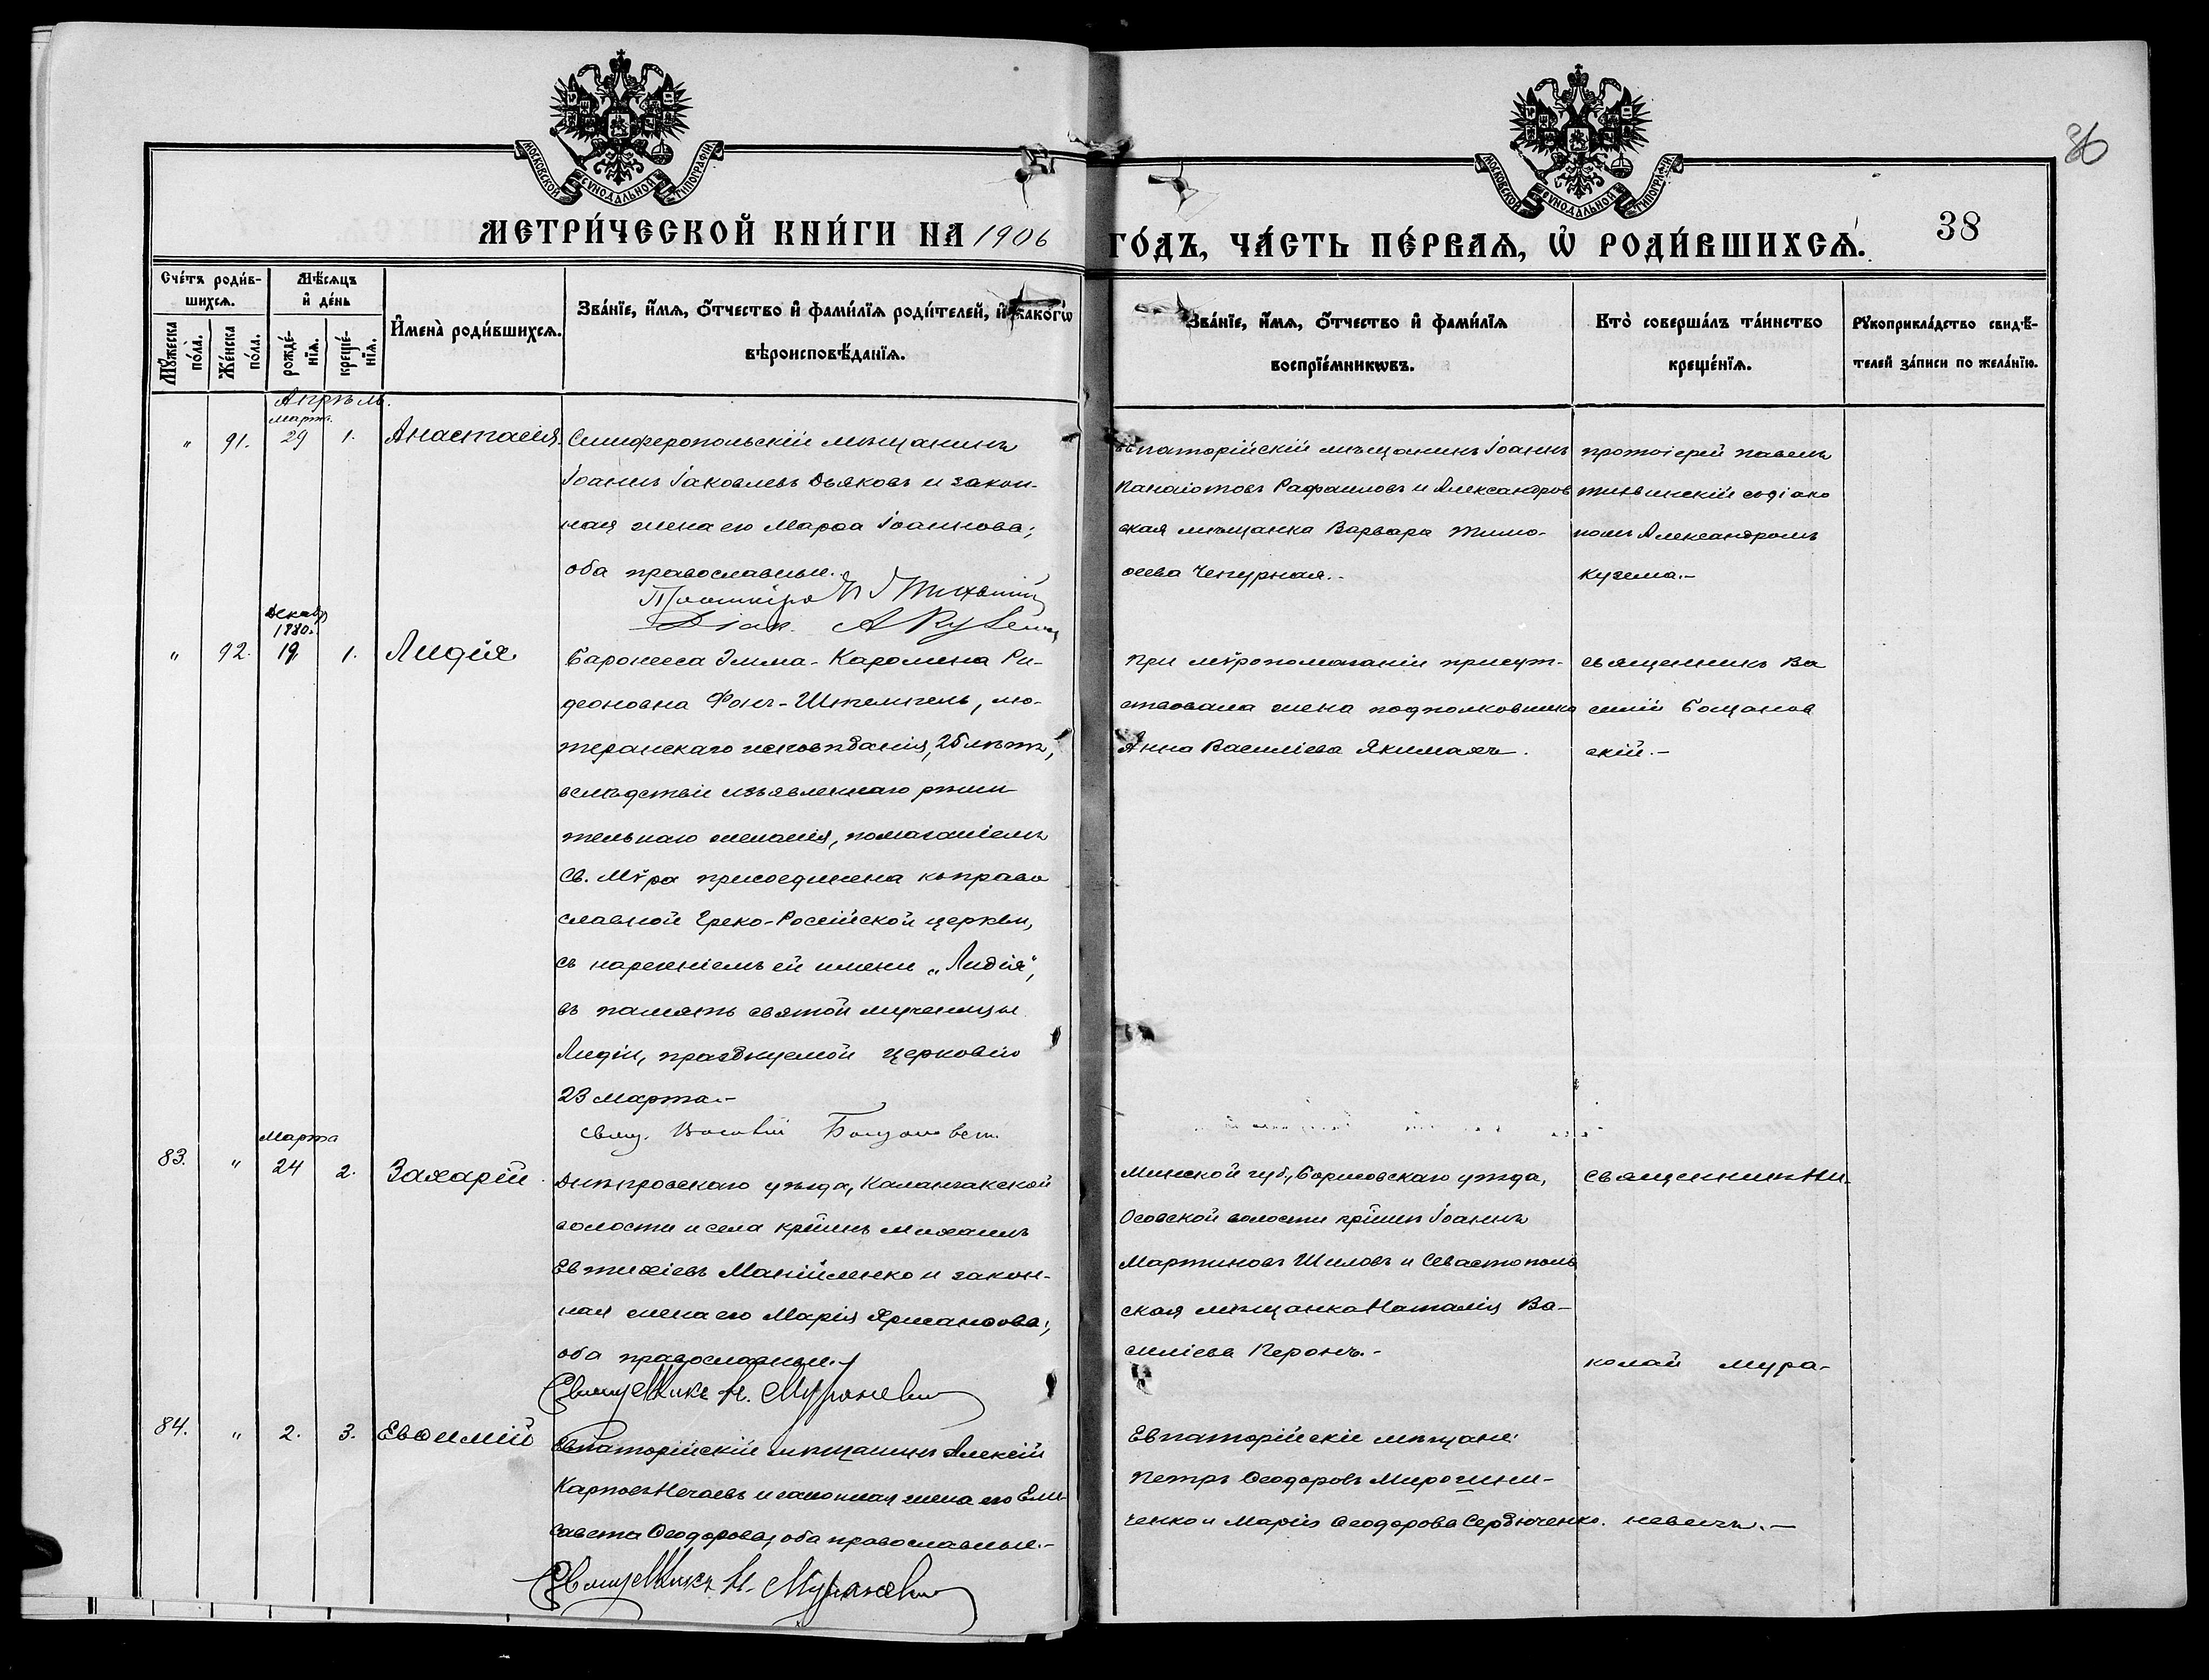 МОСКОВСКОЙ СѴНОДАЛЬНОЙ ТИПОГРАФІИ
МОСКОВСКОЙ СѴНОДАЛЬНОЙ ТИПОГРАФІИ
36
МЕТРИ́ЧЕСКОЙ КНИ́ГИ НА 1906 ГО́ДЪ, ЧА́СТЬ ПЕ́РВАѦ, Ѡ҆ РОДИ́ВШИХСѦ.
38
Сче́тъ роди́в-
шихсѧ.
Мꙋ́жеска по́ла.
Же́нска по́ла.
Мѣ́сѧцъ
и҆ де́нь
рожде́-нїѧ.
креще́-нїѧ.
И҆мена̀ роди́вшихсѧ.
Зва́нїе, и҆́мѧ, ѻ҆́тчество и҆ фами́лїѧ роди́телей, и҆ како́гѡ
вѣроисповѣ́данїѧ.
Зва́нїе, и҆́мѧ, ѻ҆́тчество и҆ фами́лїѧ
воспрїе́мникѡвъ.
Кто̀ соверша́лъ та́инство
креще́нїѧ.
Рꙋкоприкла́дство свидѣ́-
телей за́писи по жела́нїю.
Апрѣль.
Марта.
" 91. 29 1. Анастасія
Симферопольскій мѣщанинъ
Іоаннъ Іаковлевъ Дьяковъ и закон-
ная жена его Марѳа Іоаннова;
оба православные.
Діак. А Куземa
Евпаторійскій мѣщанинъ Іоаннъ
Панаіотовъ Рафаиловъ и Александров
ская мѣщанка Варвара Тимо-
ѳеева Чепурная.-
протоіерей Павелъ
Тихвинскій съ діако
номъ Александромъ
Кузема.-
Декабр
1880.
" 92. 19. 1. Лидія
Баронесса Эмма-Каролина Ги-
деоновна Фонъ-Штемпель, лю-
теранскаго исповѣданія, 26 лѣтъ,
вслѣдствіе изъявленнаго рѣши
тельнаго желанія, помазаніемъ
Св. Мѵра присоединена къ право
славной Греко-Россійской церкви,
съ нареченіемъ ей имени „Лидія",
въ память святой мученицы
Лидіи, празднуемой церковію
23 марта.-
свящ. Василій Бощановскій
При мѵропомазаніи присут-
ствовала жена подполковника
Анна Василіева Якимахъ.
священникъ Ва
силій Бощанов
скій.-
Марта
83. " 24 2. Захарій
Днѣпровскаго уѣзда, Каланчакской
волости и села кр̃нинъ Михаилъ
Евтихіевъ Манійленко и закон-
ная жена его Марія
оба православные.
Священникъ Н. Мураневичъ
Минской губ., Борисовскаго уѣзда,
Осовской волости кр̃нинъ Іоаннъ
Мартиновъ Шиловъ и Севастополь
ская мѣщанка Наталія Ва-
силіева Перонъ.-
Священникъ Ни-
колай Мура-
84. " 2. 3. Евѳимій
Евпаторійскій мѣщанинъ Алексій
Карповъ Нечаевъ и законная жена его Ели-
савета Ѳеодорова, оба православные.-
Священникъ Н. Мураневичъ
Евпаторійскіе мѣщане:
Петръ Ѳеодоровъ Мирошни-
ченко и Марія Ѳеодорова Сердюченко.
невичъ.-